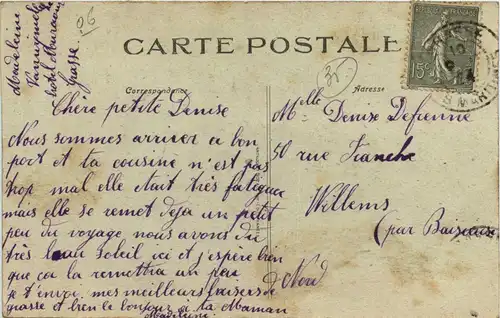 06
Madeleine
hôtel Muraour
Grasse
CARTE POSTALE
35
15c
Correspondance
Adresse
Chère petite Denise
Nous sommes arriver a bon
port et ta cousine n'est pas
trop mal elle était très fatiguée
mais elle se remet deja un petit
peu du voyage nous avons du
très beau soleil ici et j'espère bien
que ca la remettra un peu
je t'envoi mes meilleurs baisers de
grasse et bien le bonjour a ta Maman
Madeleine
Melle Denise Defrenne
50 rue Franche
Willems
(par Baisieux
Nord